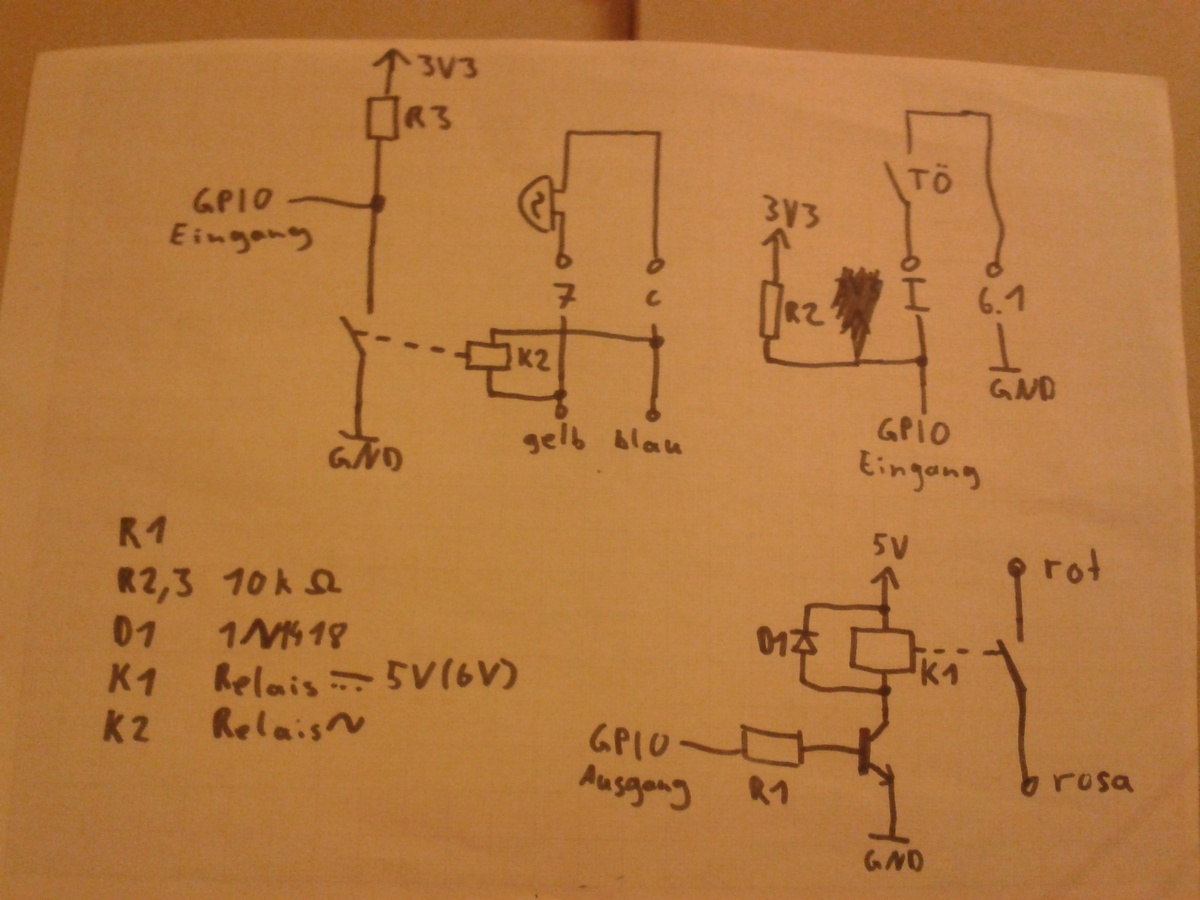 3V3
R3
GPIO
Eingang
7
c
K2
gelb blau
GND
TÖ
3V3
R2
I
6.1
GND
GPIO
Eingang
R1
R2,3 10kΩ
D1
K1 Relais 5V(6V)
K2 Relais~
5V
rot
D1
K1
GPIO
Ausgang
R1
rosa
GND